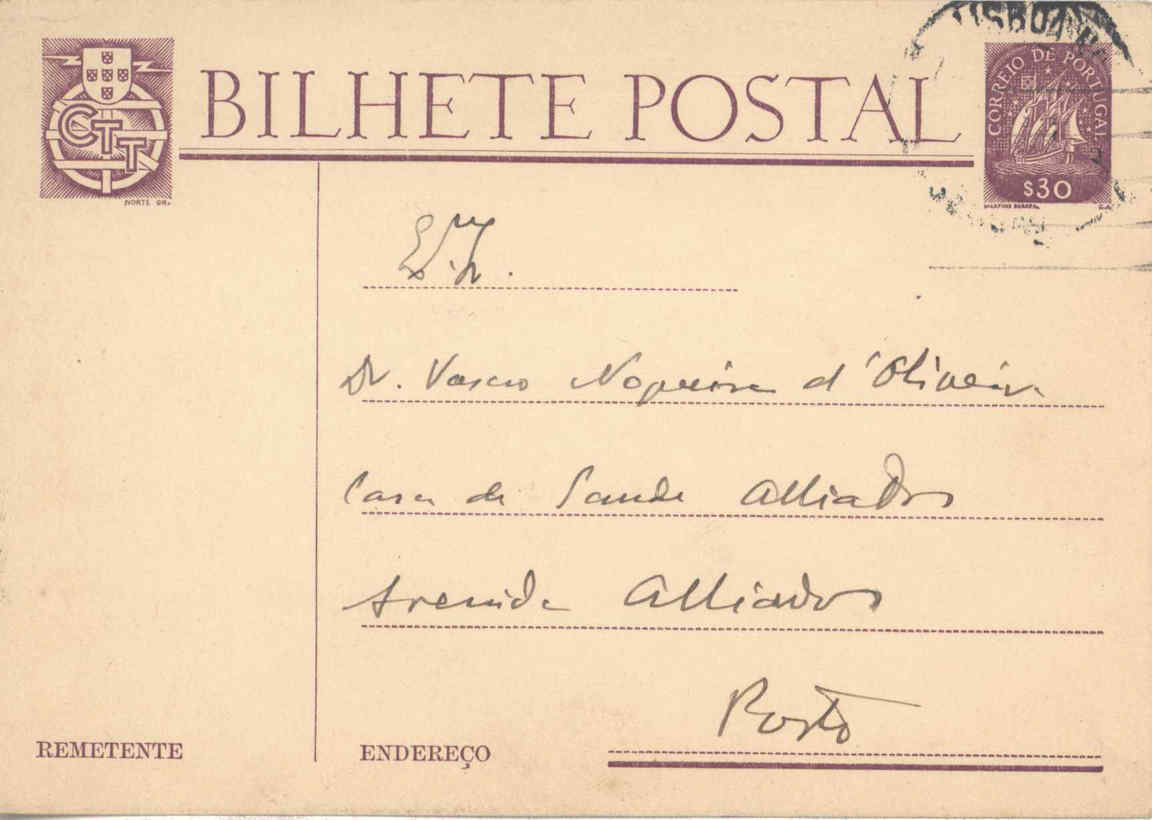 LISBOA
CTT
BILHETE POSTAL
CORREIO DE PORTUGAL
$30
NORTE GR.
Dr. Vasco Nogueira d'Oliveira
Casa de Saude Alliados
Avenida Alliados
Porto
REMETENTE
ENDEREÇO